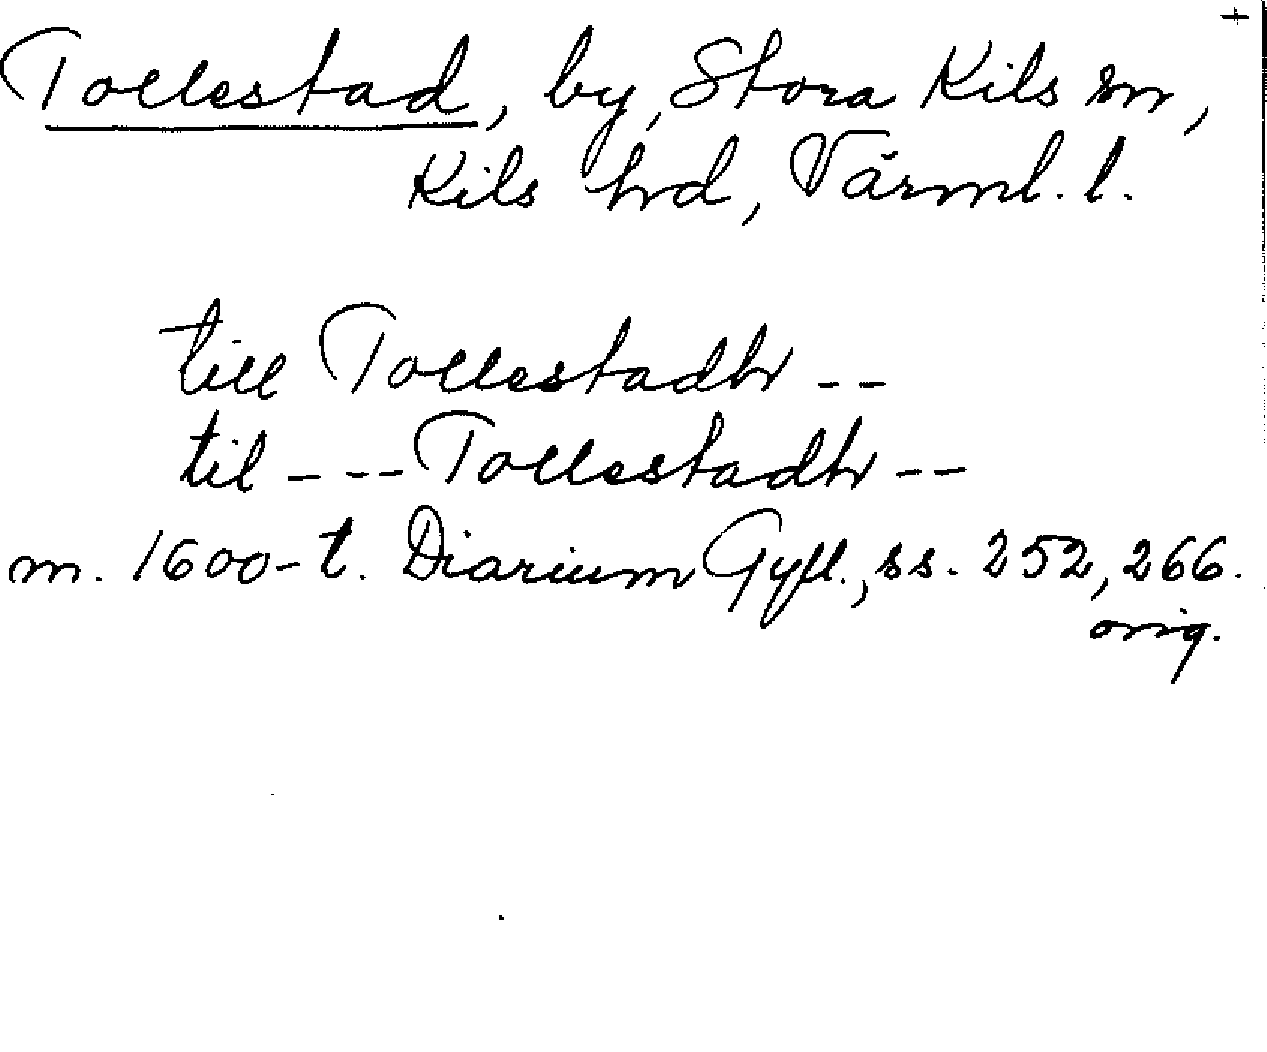 +
Tollestad, by, Stora Kils sn,
Kils hrd, Värml. l.
till Tollestadh --
til --- Tollestadh --
m. 1600-t. Diarium Gyll., ss. 252, 266.
orig.